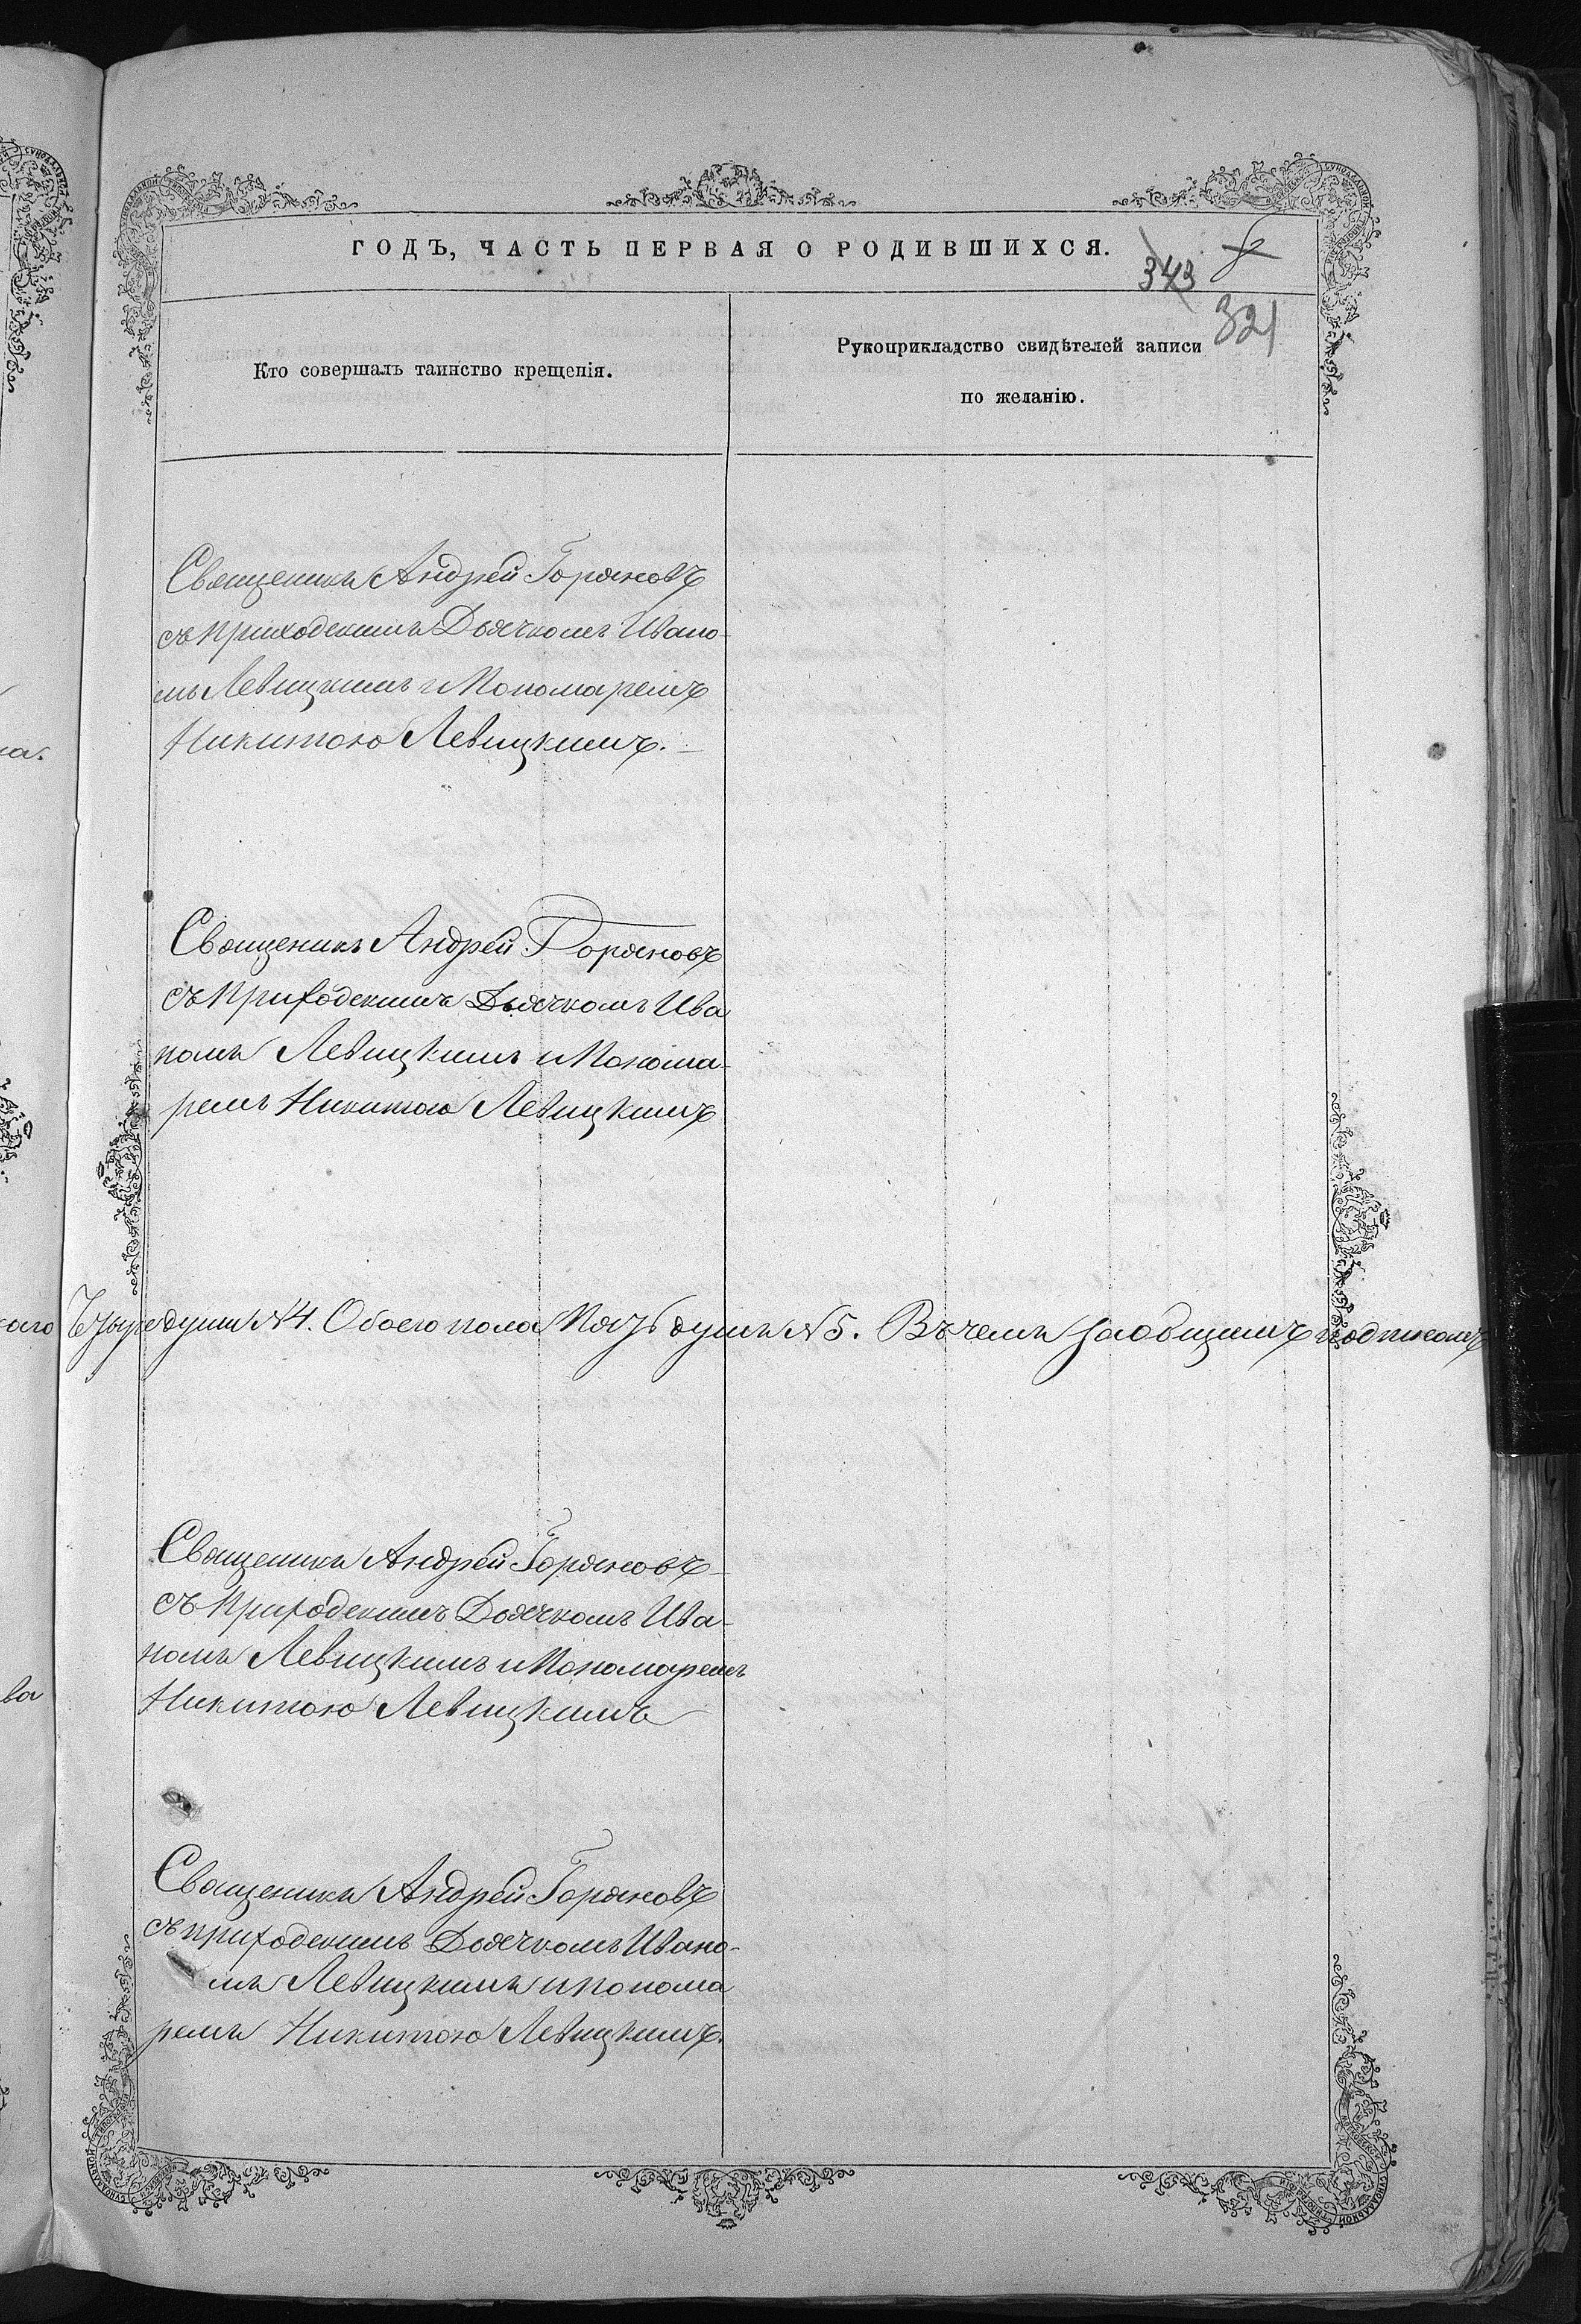 ГОДЪ, ЧАСТЬ ПЕРВАЯ О РОДИВШИХСЯ.
343
321
Кто совершалъ таинство крещенія.
Рукоприкладство свидѣтелей записи
по желанію.
Священикъ Андрей Горяновъ
съ приходскимъ Дьячкомъ Ивано-
мъ Левицкимъ и Пономаремъ
Никитою Левицкимъ.
Священикъ Андрей Горяновъ
съ Приходскимъ Дьячкомъ Ива
номъ Левицкимъ и Понома-
ремъ Никитою Левицкимъ
душъ № 4. Обоего пола Пять душъ № 5. Въ чемъ
Священикъ Андрей Горяновъ
съ Приходскимъ Дьячкомъ Ива-
номъ Левицкимъ и Пономаремъ
Никитою Левицкимъ
Священикъ Андрей Горяновъ
съ приходскимъ Дьячкомъ Ивано-
мъ Левицкимъ и понома
ремъ Никитою Левицкимъ.